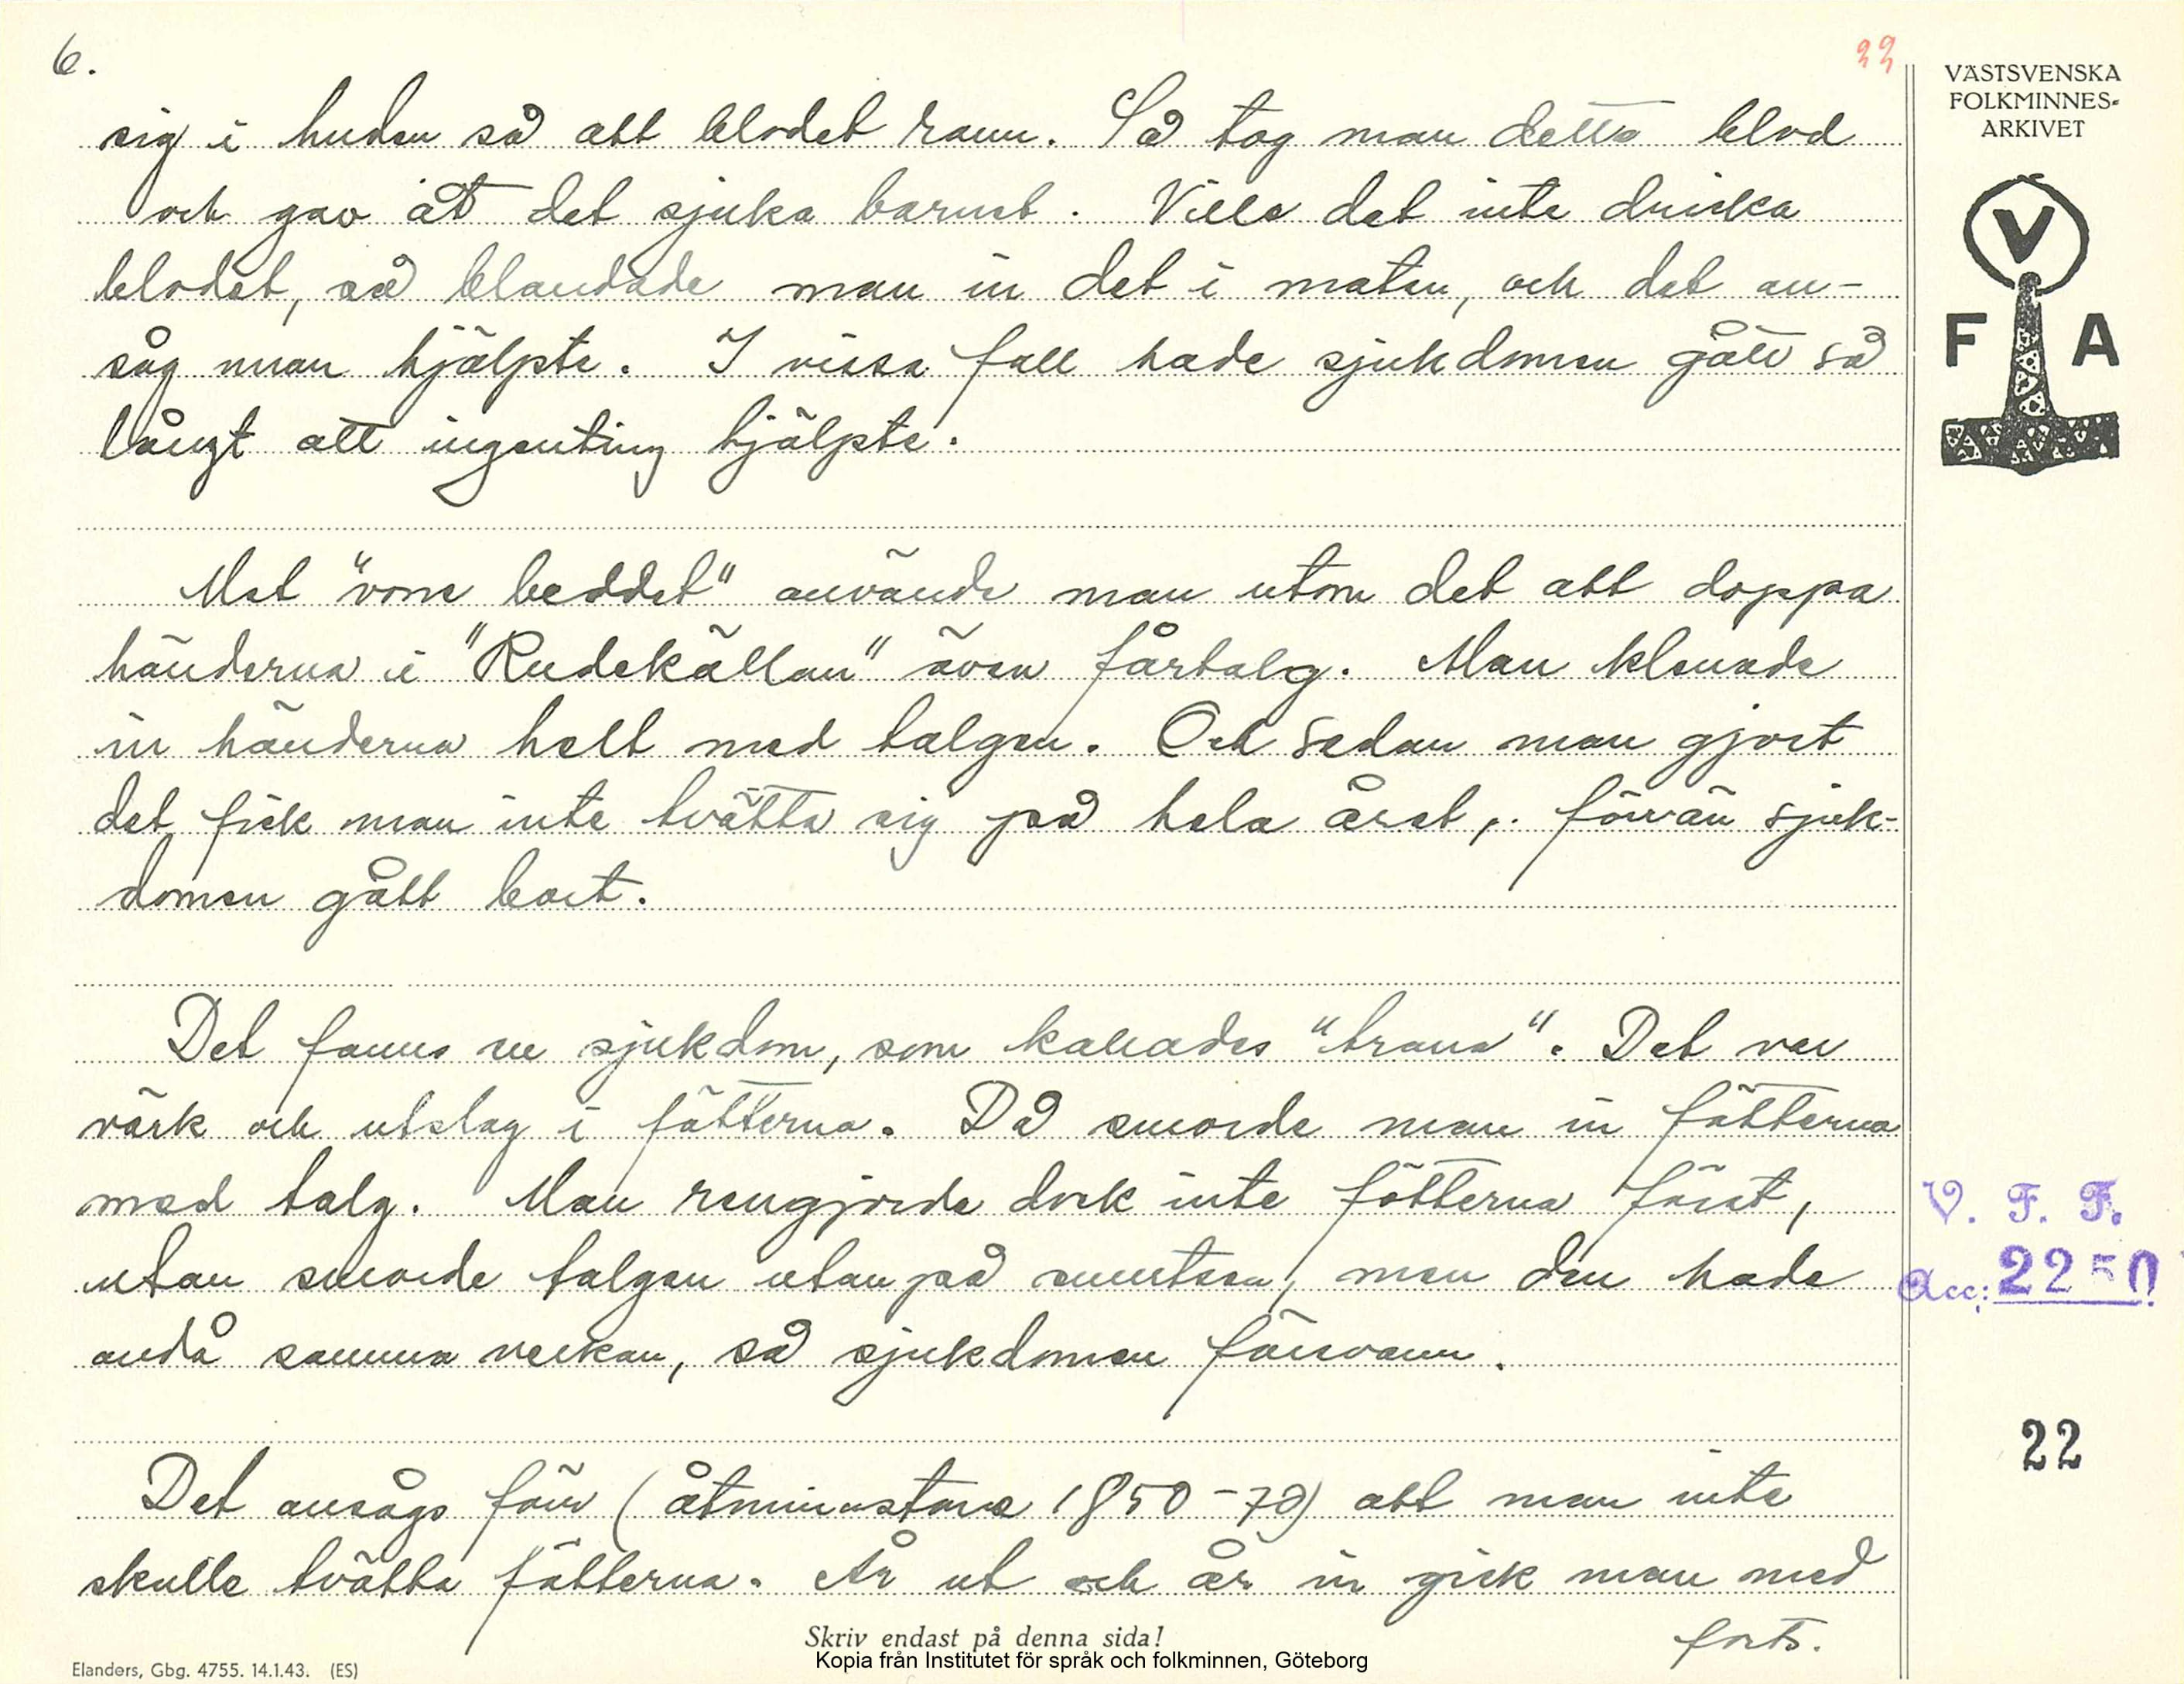 6.
22
sig i huden så att blodet rann. Så tog man detta blod
och gav åt det sjuka barnet. Ville det inte dricka
blodet, så blandade man in det i maten, och det an-
såg man hjälpte. I vissa fall hade sjukdomen gått så
långt att ingenting hjälpte.
Mot "vone beddet" använde man utom det att doppa
händerna i "Rudekällan" även fårtalg. Man klenade
in händerna helt med talgen. Och sedan man gjort
det fick man inte tvätta sig på hela året, förrän sjuk-
domen gått bort.
Det fanns en sjukdom, som kallades "trana". Det var
värk och utslag i fötterna. Då smorde man in fötterna
med talg. Man rengjorde dock inte fötterna först,
utan smorde talgen utan på smutsen, men den hade
ändå samma verkan, så sjukdomen försvann.
Det ansågs förr (åtminstone 1850-70) att man inte
skulle tvätta fötterna. År ut och år in gick man med
forts.
Skriv endast på denna sida!
Kopia från Institutet för språk och folkminnen, Göteborg
Elanders, Gbg. 4755. 14.1.43. (ES)
VÄSTSVENSKA
FOLKMINNES-
ARKIVET
V
F A
V. F. F.
Acc: 2250
22